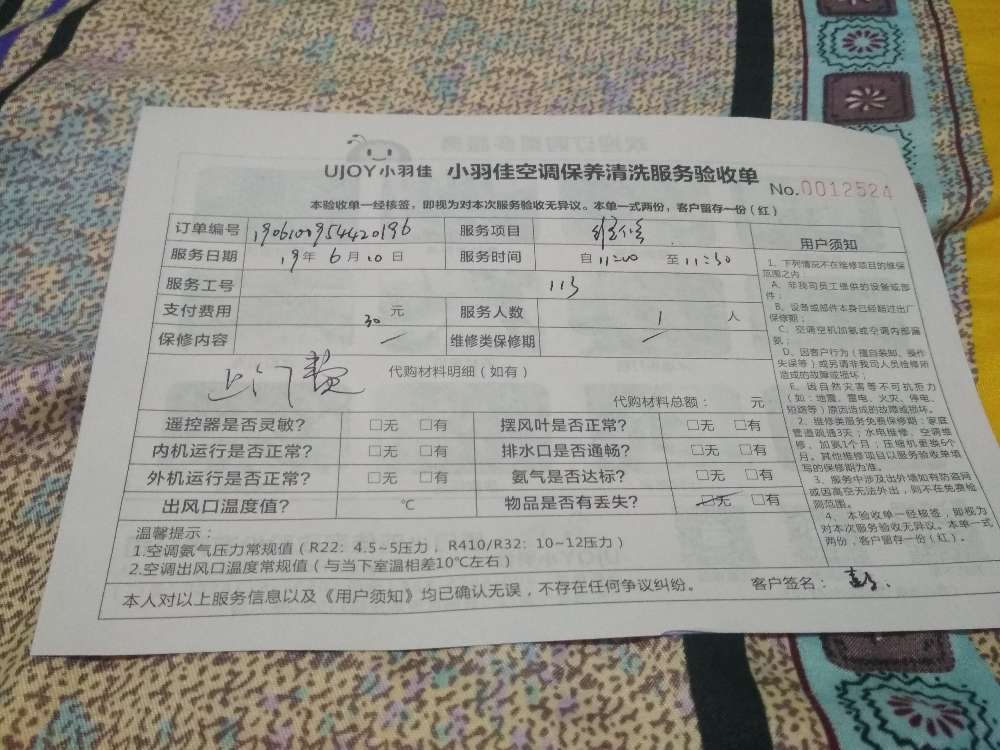 UJOY小羽佳 小羽佳空调保养清洗服务验收单
No.0012524
本验收单一经核签，即视为对本次服务验收无异议。本单一式两份，客户留存一份（红）
订单编号 190610095442019б 服务项目 维修
服务日期 19年6月10日 服务时间 自11:00 至11:30
服务工号 113
支付费用 30元 服务人数 1人
保修内容 / 维修类保修期 /
上门费 代购材料明细（如有）
代购材料总额： 元
遥控器是否灵敏？ □无 □有 摆风叶是否正常？ □无 □有
内机运行是否正常？ □无 □有 排水口是否通畅？ □无 □有
外机运行是否正常？ □无 □有 氨气是否达标？ □无 □有
出风口温度值？ ℃ 物品是否有丢失？ □无 □有
温馨提示：
1.空调氨气压力常规值（R22：4.5~5压力，R410/R32：10~12压力）
2.空调出风口温度常规值（与当下室温相差10℃左右）
本人对以上服务信息以及《用户须知》均已确认无误，不存在任何争议纠纷。 客户签名：
用户须知
1、下列情况不在维修项目的维保
范围之内：
A、非我司员工提供的设备或部
件；
B、设备或部件本身已经超过出厂
保修期；
C、空调空机加氨或空调内部漏
氨；
D、因客户行为（擅自装卸、操作
失误等）或另请非我司人员检修所
造成的故障或损坏；
E、因自然灾害等不可抗拒力
（如：地震、雷电、火灾、停电、
短路等）原因造成的故障或损坏。
2、维修类服务免费保修期：家庭
管道疏通3天；水电维修、空调维
修、加氨1个月；压缩机更换6个
月。其他维修项目以服务验收单填
写的保修期为准。
3、服务中涉及出外墙如有防盗网
或因高空无法外出，则不在免费检
测范围。
4、本验收单一经核签，即视为
对本次服务验收无异议。本单一式
两份，客户留存一份（红）。